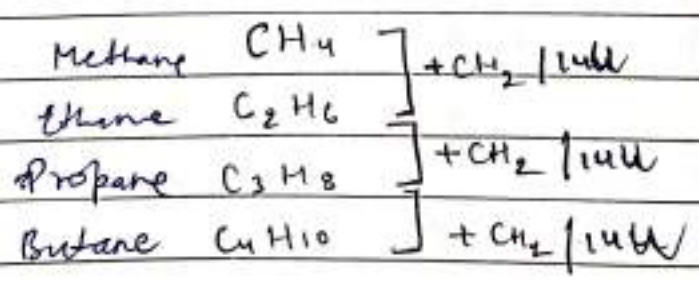 Methane CH4 +CH2 / 14u
Ethane C2H6
Propane C3H8 +CH2 / 14u
Butane C4H10 + CH2 / 14u